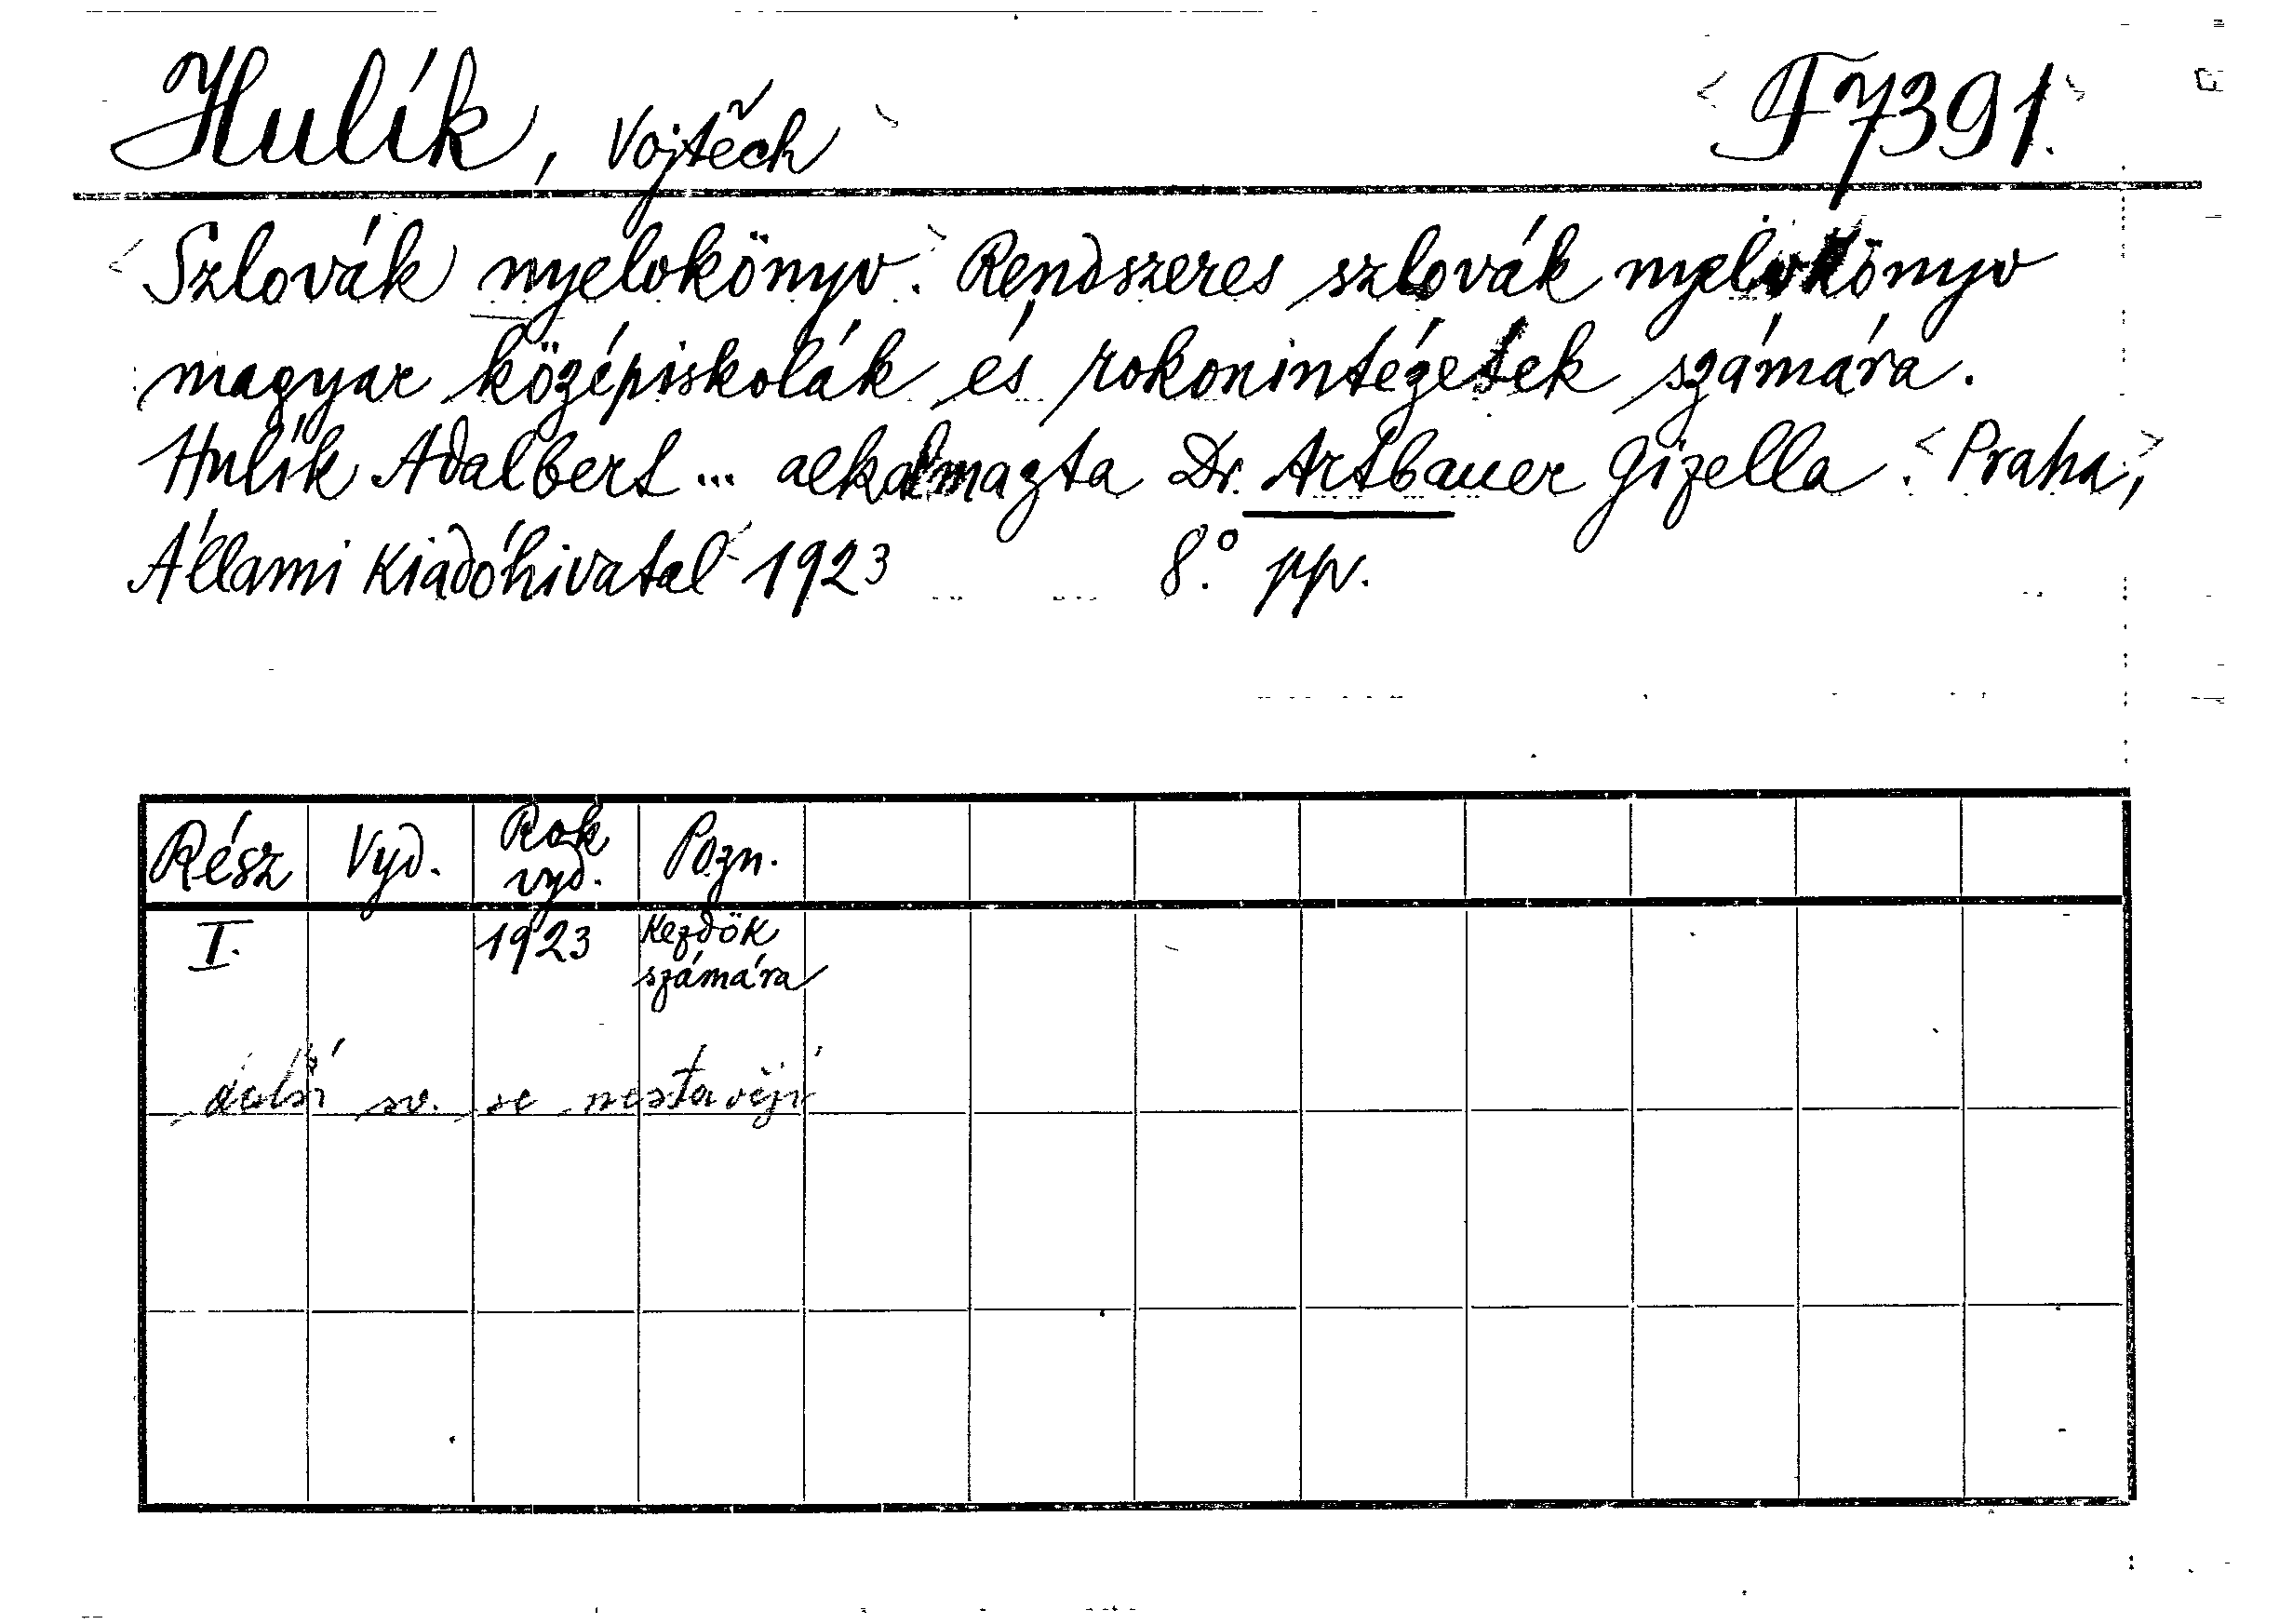 Hulík, Vojtěch F 7391.
Szlovák nyelvkönyv. Rendszeres szlovák nyelvkönyv
magyar középiskolák és rokonintézetek számára.
Hulík Adalbert ... alkalmazta Dr. Artbauer Gizella. Praha,
Állami Kiadóhivatal 1923 8.° pp.
Rész Vyd. Rok vyd. Pozn.
I. 1923 Kezdök
számára
další sv. se nestavějí